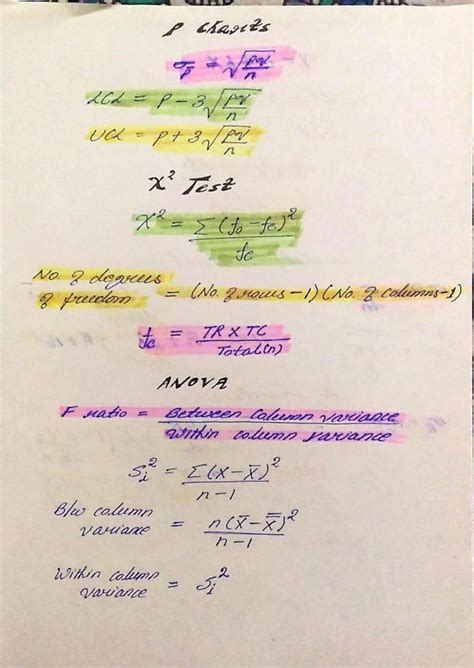 P Charts
σp̄ = √pq/n
LCL = P - 3√pq/n
UCL = P + 3√pq/n
χ² Test
χ² = Σ(fo - fe)²/fe
No. of degrees
of freedom = (No. of rows - 1) (No. of columns - 1)
fe = TR X TC / Total(n)
ANOVA
F ratio = Between Column Variance / Within column variance
Si² = Σ(X - X̄)² / n-1
B/w column
variance = n(X̄ - X̿)² / n-1
Within column
variance = Si²